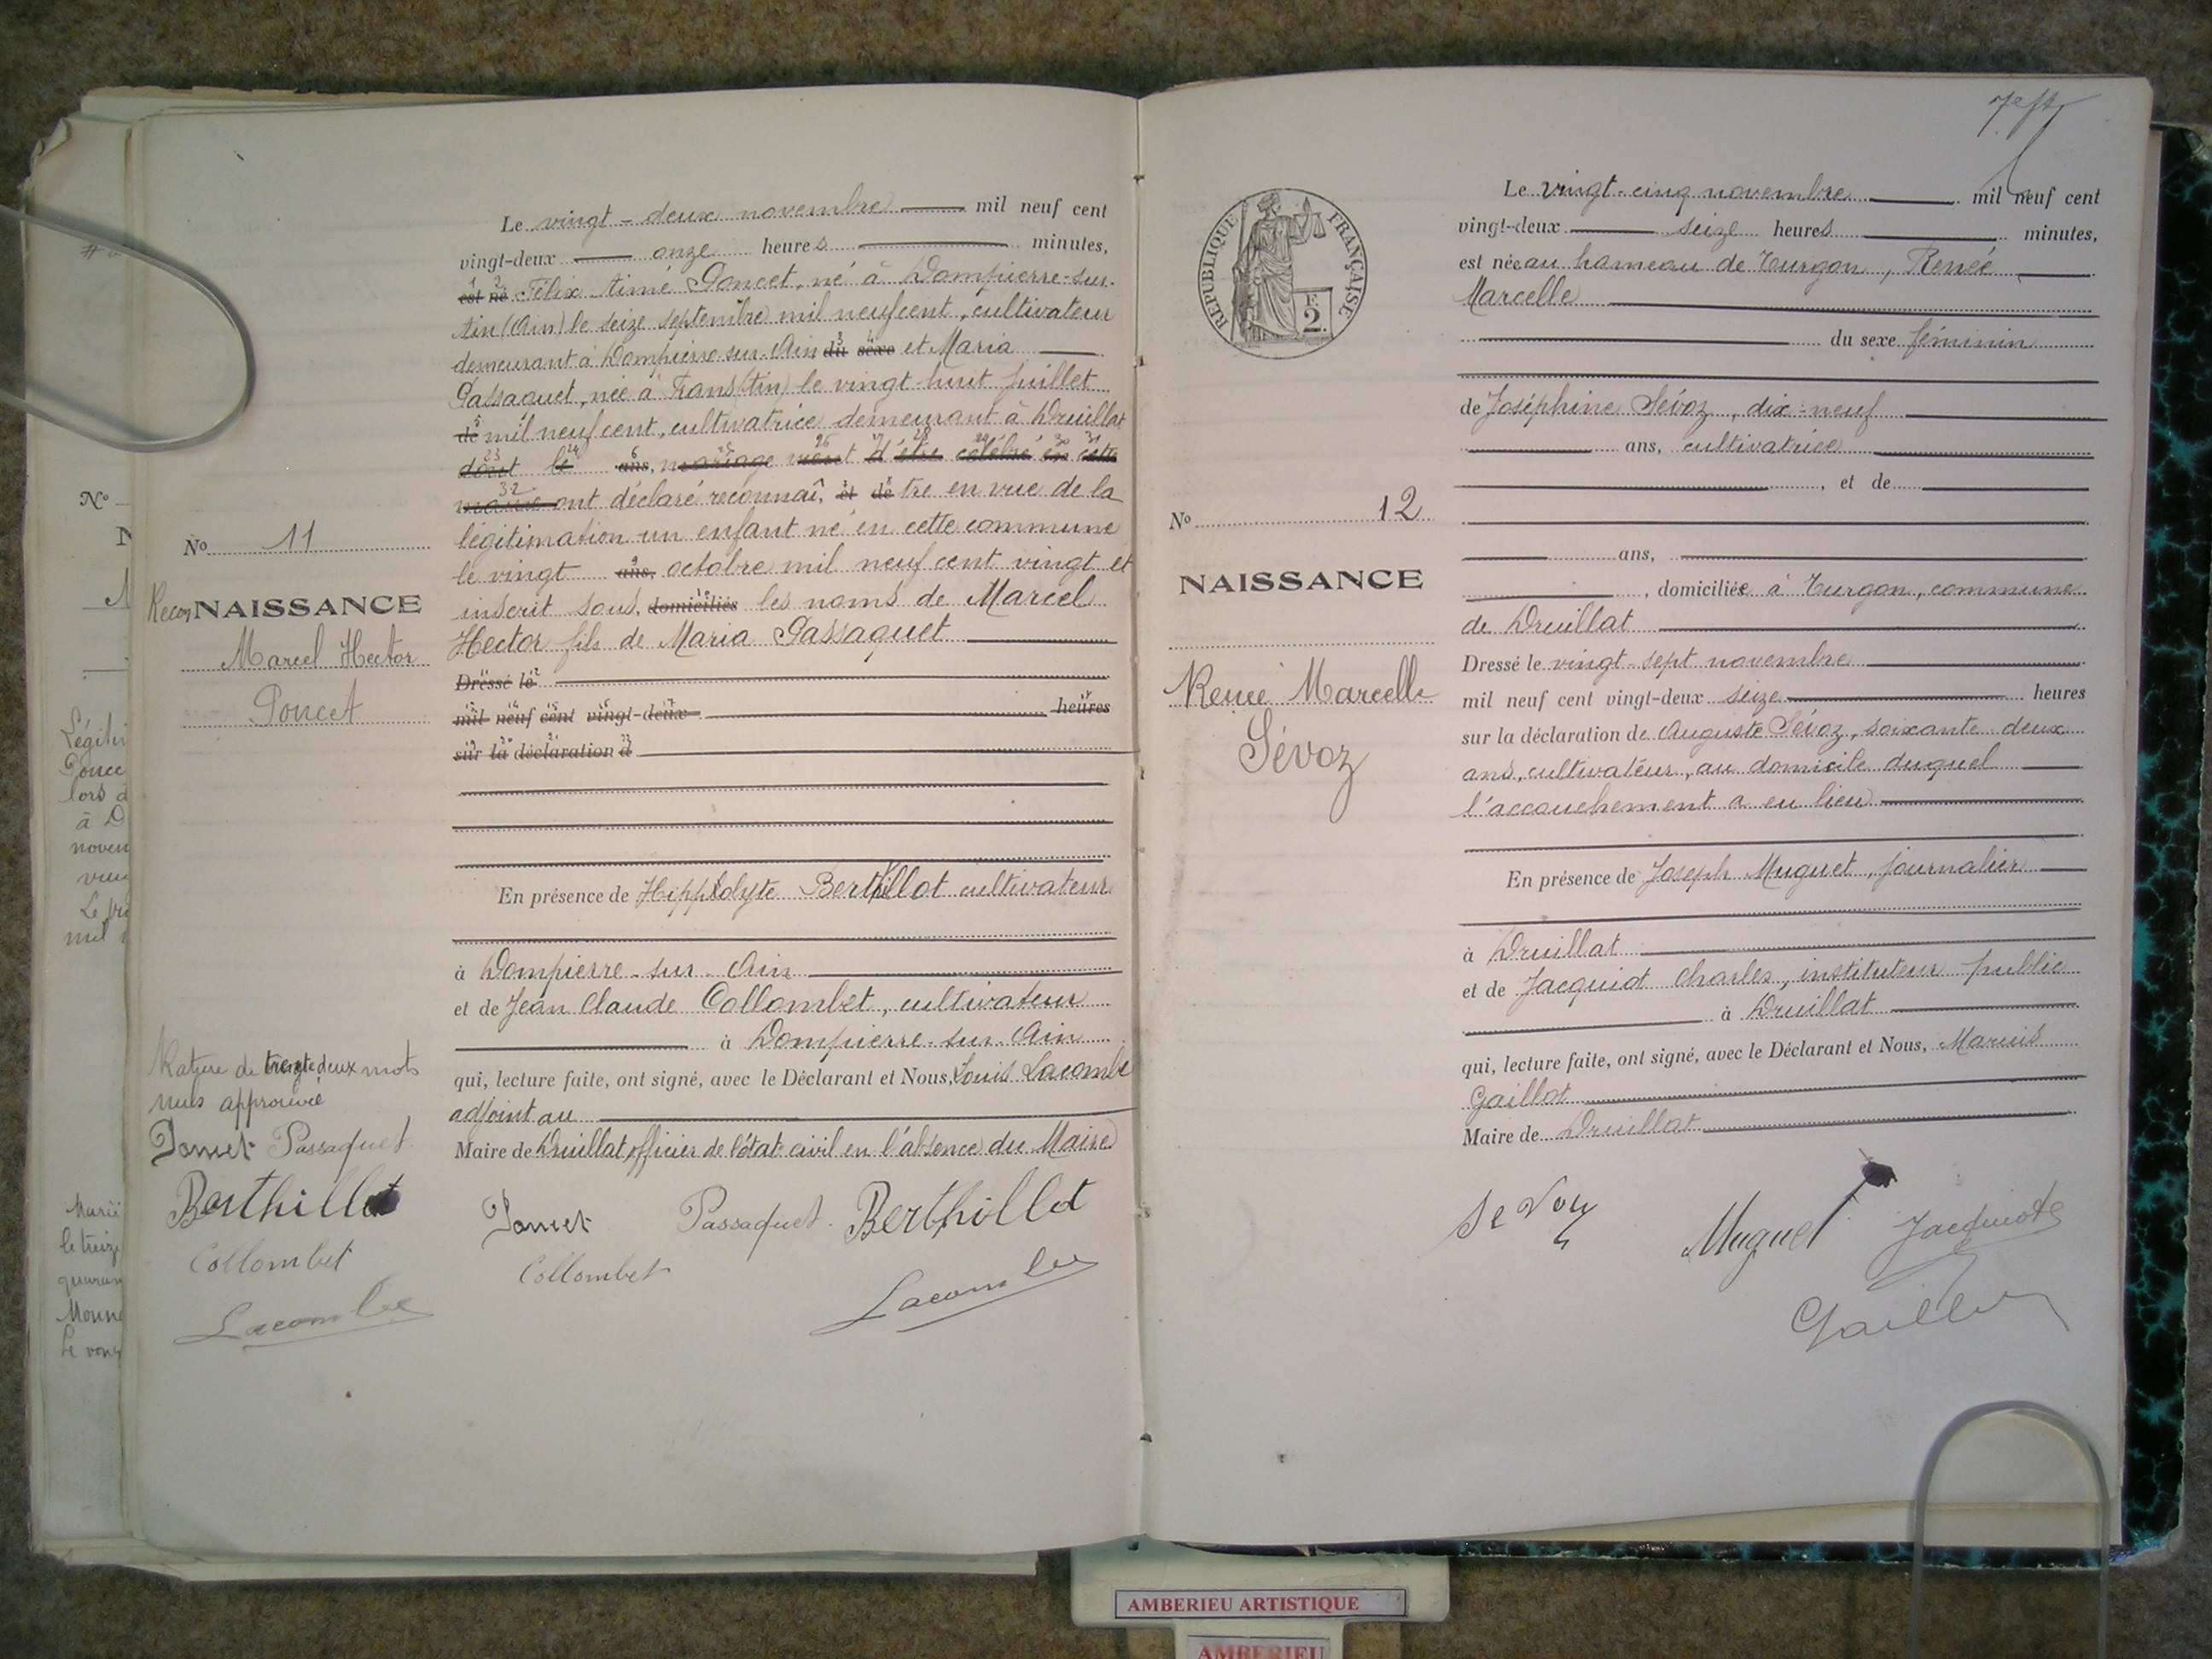 Le vingt-deux novembre mil neuf cent
vingt-deux onze heures minutes,
est né Félix Aimé Poncet, né à Dompierre-sur-
Ain (Ain) le seize septembre mil neuf cent, cultivateur
demeurant à Dompierre-sur-Ain du sexe et Maria
Passaquet, née à (Ain) le vingt-huit juillet
de mil neuf cent, cultivatrice demeurant à Druillat
dont le ans, mariage vient d'être célébré en cette
mairie ont déclaré reconnaî, et de tre en vue de la
légitimation un enfant né en cette commune
le vingt ans, octobre mil neuf cent vingt et
inscrit sous, domiciliés les noms de Marcel
Hector fils de Maria Passaquet
Dressé le
mil neuf cent vingt-deux heures
sur la déclaration d
En présence de Hippolyte Berthillot cultivateur
à Dompierre-sur-Ain
et de Jean Claude Collombet, cultivateur
à Dompierre-sur-Ain
qui, lecture faite, ont signé, avec le Déclarant et Nous, Louis Lacombe
adjoint au
Maire de Druillat officier de l'état civil en l'absence du Maire
Poncet Passaquet Berthillot
Collombet
Lacombe
No 11
Recon NAISSANCE
Marcel Hector
Poncet
Rature de trente deux mots
nuls approuvée
Poncet Passaquet
Berthillot
Collombet
Lacombe
No
Légiti
Ponce
lors d
à D
novem
ving
mil
le treize
quaran
RÉPUBLIQUE FRANÇAISE
F.
2.
Le vingt-cinq novembre mil neuf cent
vingt-deux seize heures minutes,
est née au hameau de Turgon, Renée
Marcelle
du sexe féminin
de Joséphine Sévoz, dix-neuf
ans, cultivatrice
, et de
ans,
, domiciliée à Turgon, commune
de Druillat
Dressé le vingt-sept novembre
mil neuf cent vingt-deux seize heures
sur la déclaration de Auguste Sévoz, soixante deux
ans, cultivateur, au domicile duquel
l'accouchement a eu lieu
En présence de Joseph Muguet, journalier
à Druillat
et de Jacquiot Charles, instituteur public
à Druillat
qui, lecture faite, ont signé, avec le Déclarant et Nous, Marius
Gaillot
Maire de Druillat
Sevoz Muguet Jacquiot
Gaillot
No 12
NAISSANCE
Renée Marcelle
Sévoz
AMBERIEU ARTISTIQUE
AMBERIEU